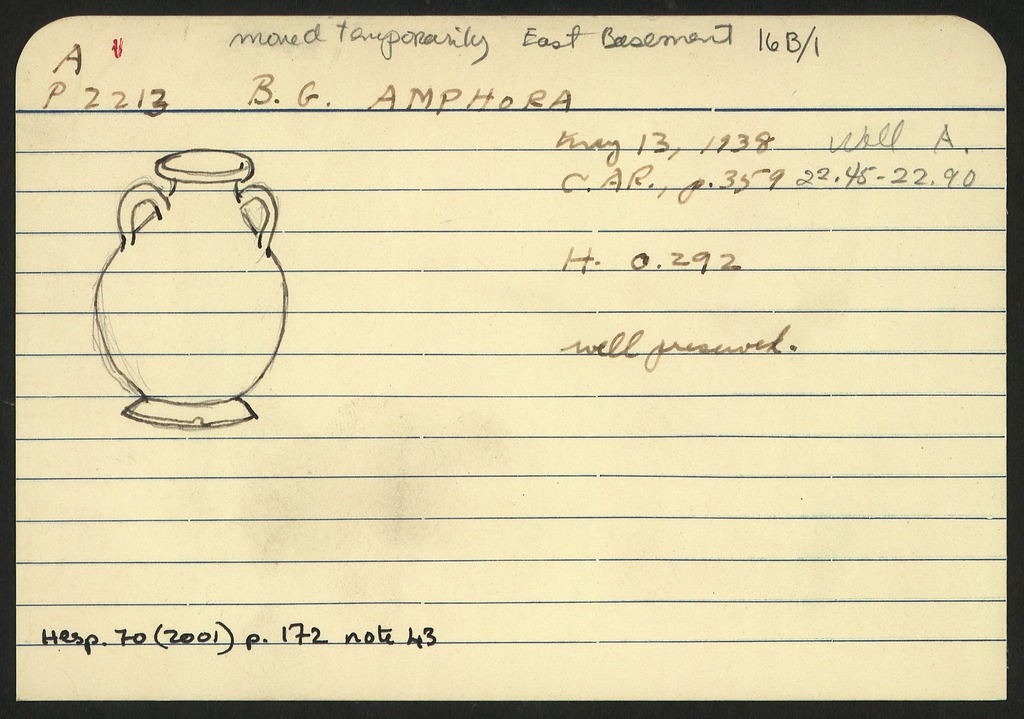 moved temporarily East Basement 16B/1
A
P 2213 B.G. AMPHORA
May 13, 1938 Well A.
C. AR., p.359 22.45-22.90
H. 0.292
well preserved.
Hesp. 70 (2001) p. 172 note 43